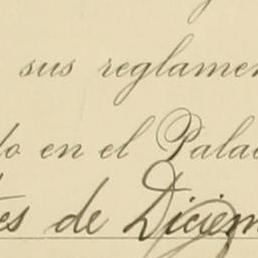 sus reglamen
do en el Palac
tes de Diciem